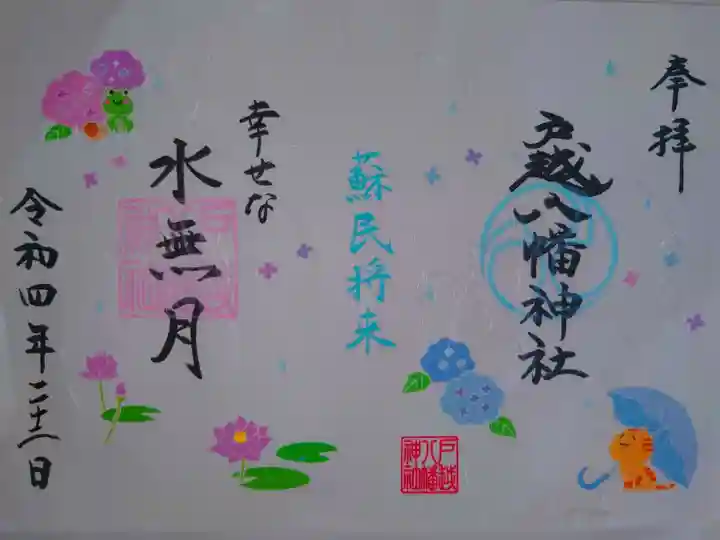 奉拝
戸越八幡神社
蘇民将来
戸越八幡神社
幸せな
水無月
令和四年
日